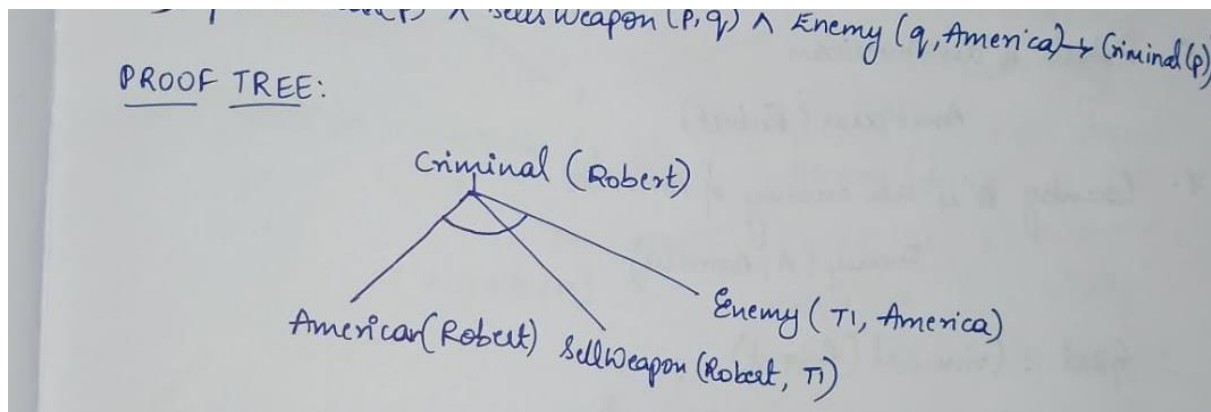 Weapon (p, q) ∧ Enemy (q, America) → Criminal (p)
PROOF TREE:
Criminal (Robert)
American (Robert) SellWeapon (Robert, T1) Enemy (T1, America)